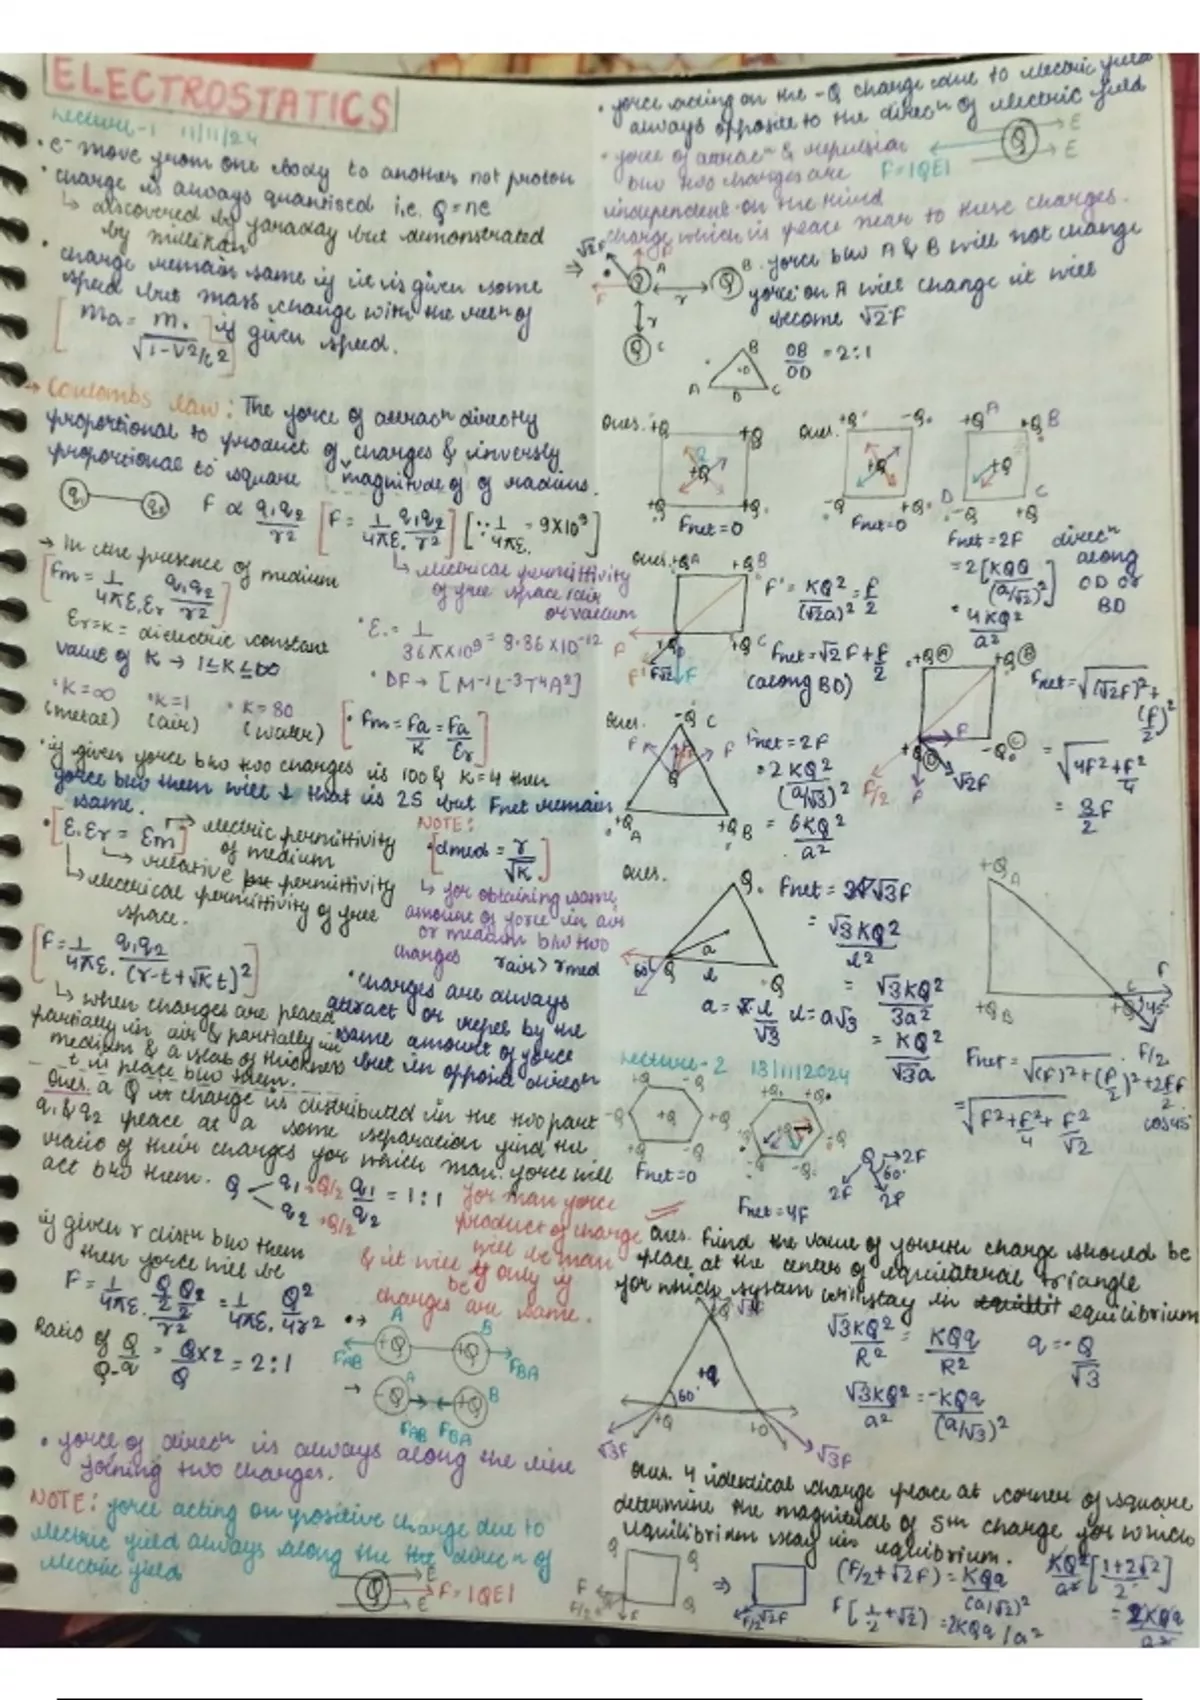 ELECTROSTATICS
Lecture-1 11/11/24
• e⁻ move from one body to another not proton
• charge is always quantised i.e. Q = ne
↳ discovered by faraday but demonstrated
by millikan
• charge remain same if it is given some
speed but mass change with the
[ Ma = m₀ / √1-v²/c² ] if given speed.
→ Coulombs law: The force of attracⁿ directly
proportional to product of charges & inversly
proportional to square magnitude of of radius.
q₁ q₂ F ∝ q₁q₂/r² [F = 1/4πε₀ q₁q₂/r²] [∵ 1/4πε₀ = 9×10⁹]
↳ electrical permittivity
of free space/air
or vaccum
→ In the presence of medium
[Fm = 1/4πε₀εr q₁q₂/r²]
εr = K = dielectric constant
value of K → 1≤K≤∞
• ε₀ = 1/36π×10⁹ = 8.86×10⁻¹²
• DF → [M⁻¹L⁻³T⁴A²]
• K=∞ • K=1 • K=80
(metal) (air) (water)
[• Fm = Fa/K = Fa/εr]
• if given force b/w two charges is 100 & K=4 then
force b/w them will ↓ that is 25 but Fnet remain
same.
• [ε₀εr = εm] → electric permittivity
of medium
↳ relative permittivity
↳ electrical permittivity of free
space.
NOTE:
[dmed = r/√K]
↳ for obtaining same
amount of force in air
or medium b/w two
charges rair > rmed
[F = 1/4πε₀ q₁q₂/(r-t+√K t)²]
↳ when charges are placed
partially in air & partially in
medium & a slab of thickness
t is place b/w them.
• charges are always
attract or repel by the
same amount of force
but in opposite direcⁿ
Ques. a Q is charge is distributed in the two part
q₁ & q₂ place at a some separation find the
ratio of their charges for which max. force will
act b/w them. Q q₁→Q/2 q₂→Q/2 q₁/q₂ = 1:1
for max force
product of charge
will be max
& it will be only if
charges are same.
if given r distⁿ b/w them
then force will be
F = 1/4πε₀ Q/2 Q/2 / r² = 1/4πε₀ Q²/4r²
Ratio of Q/Q-q = Q/Q ×2 = 2:1
•→ A B
FAB +Q +Q FBA
→ -Q A +Q B
FAB FBA
• force of direcⁿ is always along the line
joining two charges.
NOTE: force acting on positive charge due to
electric field always along the the direcⁿ of
electric field
Q E E F = |QE|
• force acting on the -Q charge due to electric field
always opposite to the direcⁿ of electric field
Q E E
• force of attracⁿ & repulsion
b/w two charges are F = |QE|
independent on the third
charge which is place near to these charges.
⇒ √2F F F Q A r Q B r Q C
• force b/w A & B will not change
force on A will change it will
become √2F
A B C D O OB/OD = 2:1
Ques. +Q +Q +Q +Q +Q Fnet=0
Ques. +Q -Q -Q +Q +Q Fnet=0
+Q A +Q B +Q C -Q D +Q
Fnet=2F direcⁿ
= 2[KQQ/(a/√2)²] along
OD or
BD
= 4KQ²/a²
Ques. +Q A +Q B +Q C +Q D
F' = KQ²/(√2a)² = F/2
Fnet = √2F + F/2
(along BD)
F F' F√2 F
+Q A +Q B -Q C +Q D
F/2 F F √2F
Fnet = √(√2F)²+(F/2)²
= √4F²+F²/4
= 3/2 F
Ques. -Q C +Q A +Q B Q F F
Fnet = 2F
= 2KQ²/(a/√3)²
= 6KQ²/a²
Ques. Q Q Q 60° a l
Fnet = √3F
= √3KQ²/l²
= √3KQ²/3a²
= KQ²/√3a
a = l/√3 l = a√3
+Q A +Q B +Q C F 45° F/2
Fnet = √(F)²+(F/2)²+2FF/2 cos45
= √F²+F²/4+F²/√2
Lecture-2 13/11/2024
+Q -Q -Q +Q +Q +Q -Q
Fnet=0
+Q +Q +Q -Q -Q -Q
Fnet=4F
Q→2F 60° 2F 2F
Ques. Find the value of fourth charge should be
place at the center of equilateral triangle
for which system will stay in equilibrium
√3F +Q +Q 60° √3F √3F
√3KQ²/R² = KQq/R² q = -Q/√3
√3KQ²/a² = -KQq/(a/√3)²
Ques. 4 identical charge place at corner of square
determine the magnitude of 5th charge for which
equilibrium stay in equilibrium.
Q Q Q F F/2 F ⇒ F/2 √2F
(F/2+√2F) = KQq/(a/√2)²
F[1/2+√2] = 2KQq/a²
KQ²/a² [1+2√2/2]
= 2KQq/a²